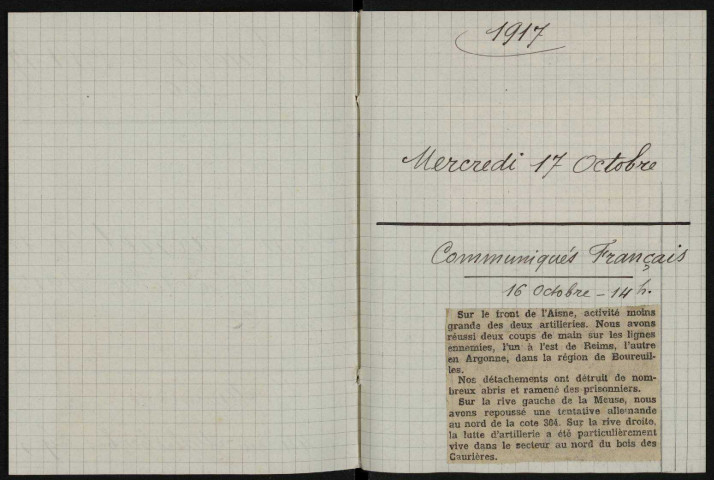 1917
Mercredi 17 Octobre
Communiqués Français
16 Octobre - 14 h.
Sur le front de l'Aisne, activité moins
grande des deux artilleries. Nous avons
réussi deux coups de main sur les lignes
ennemies, l'un à l'est de Reims, l'autre
en Argonne, dans la région de Boureuil-
les.
Nos détachements ont détruit de nom-
breux abris et ramené des prisonniers.
Sur la rive gauche de la Meuse, nous
avons repoussé une tentative allemande
au nord de la cote 304. Sur la rive droite,
la lutte d'artillerie a été particulièrement
vive dans le secteur au nord du bois des
Caurières.